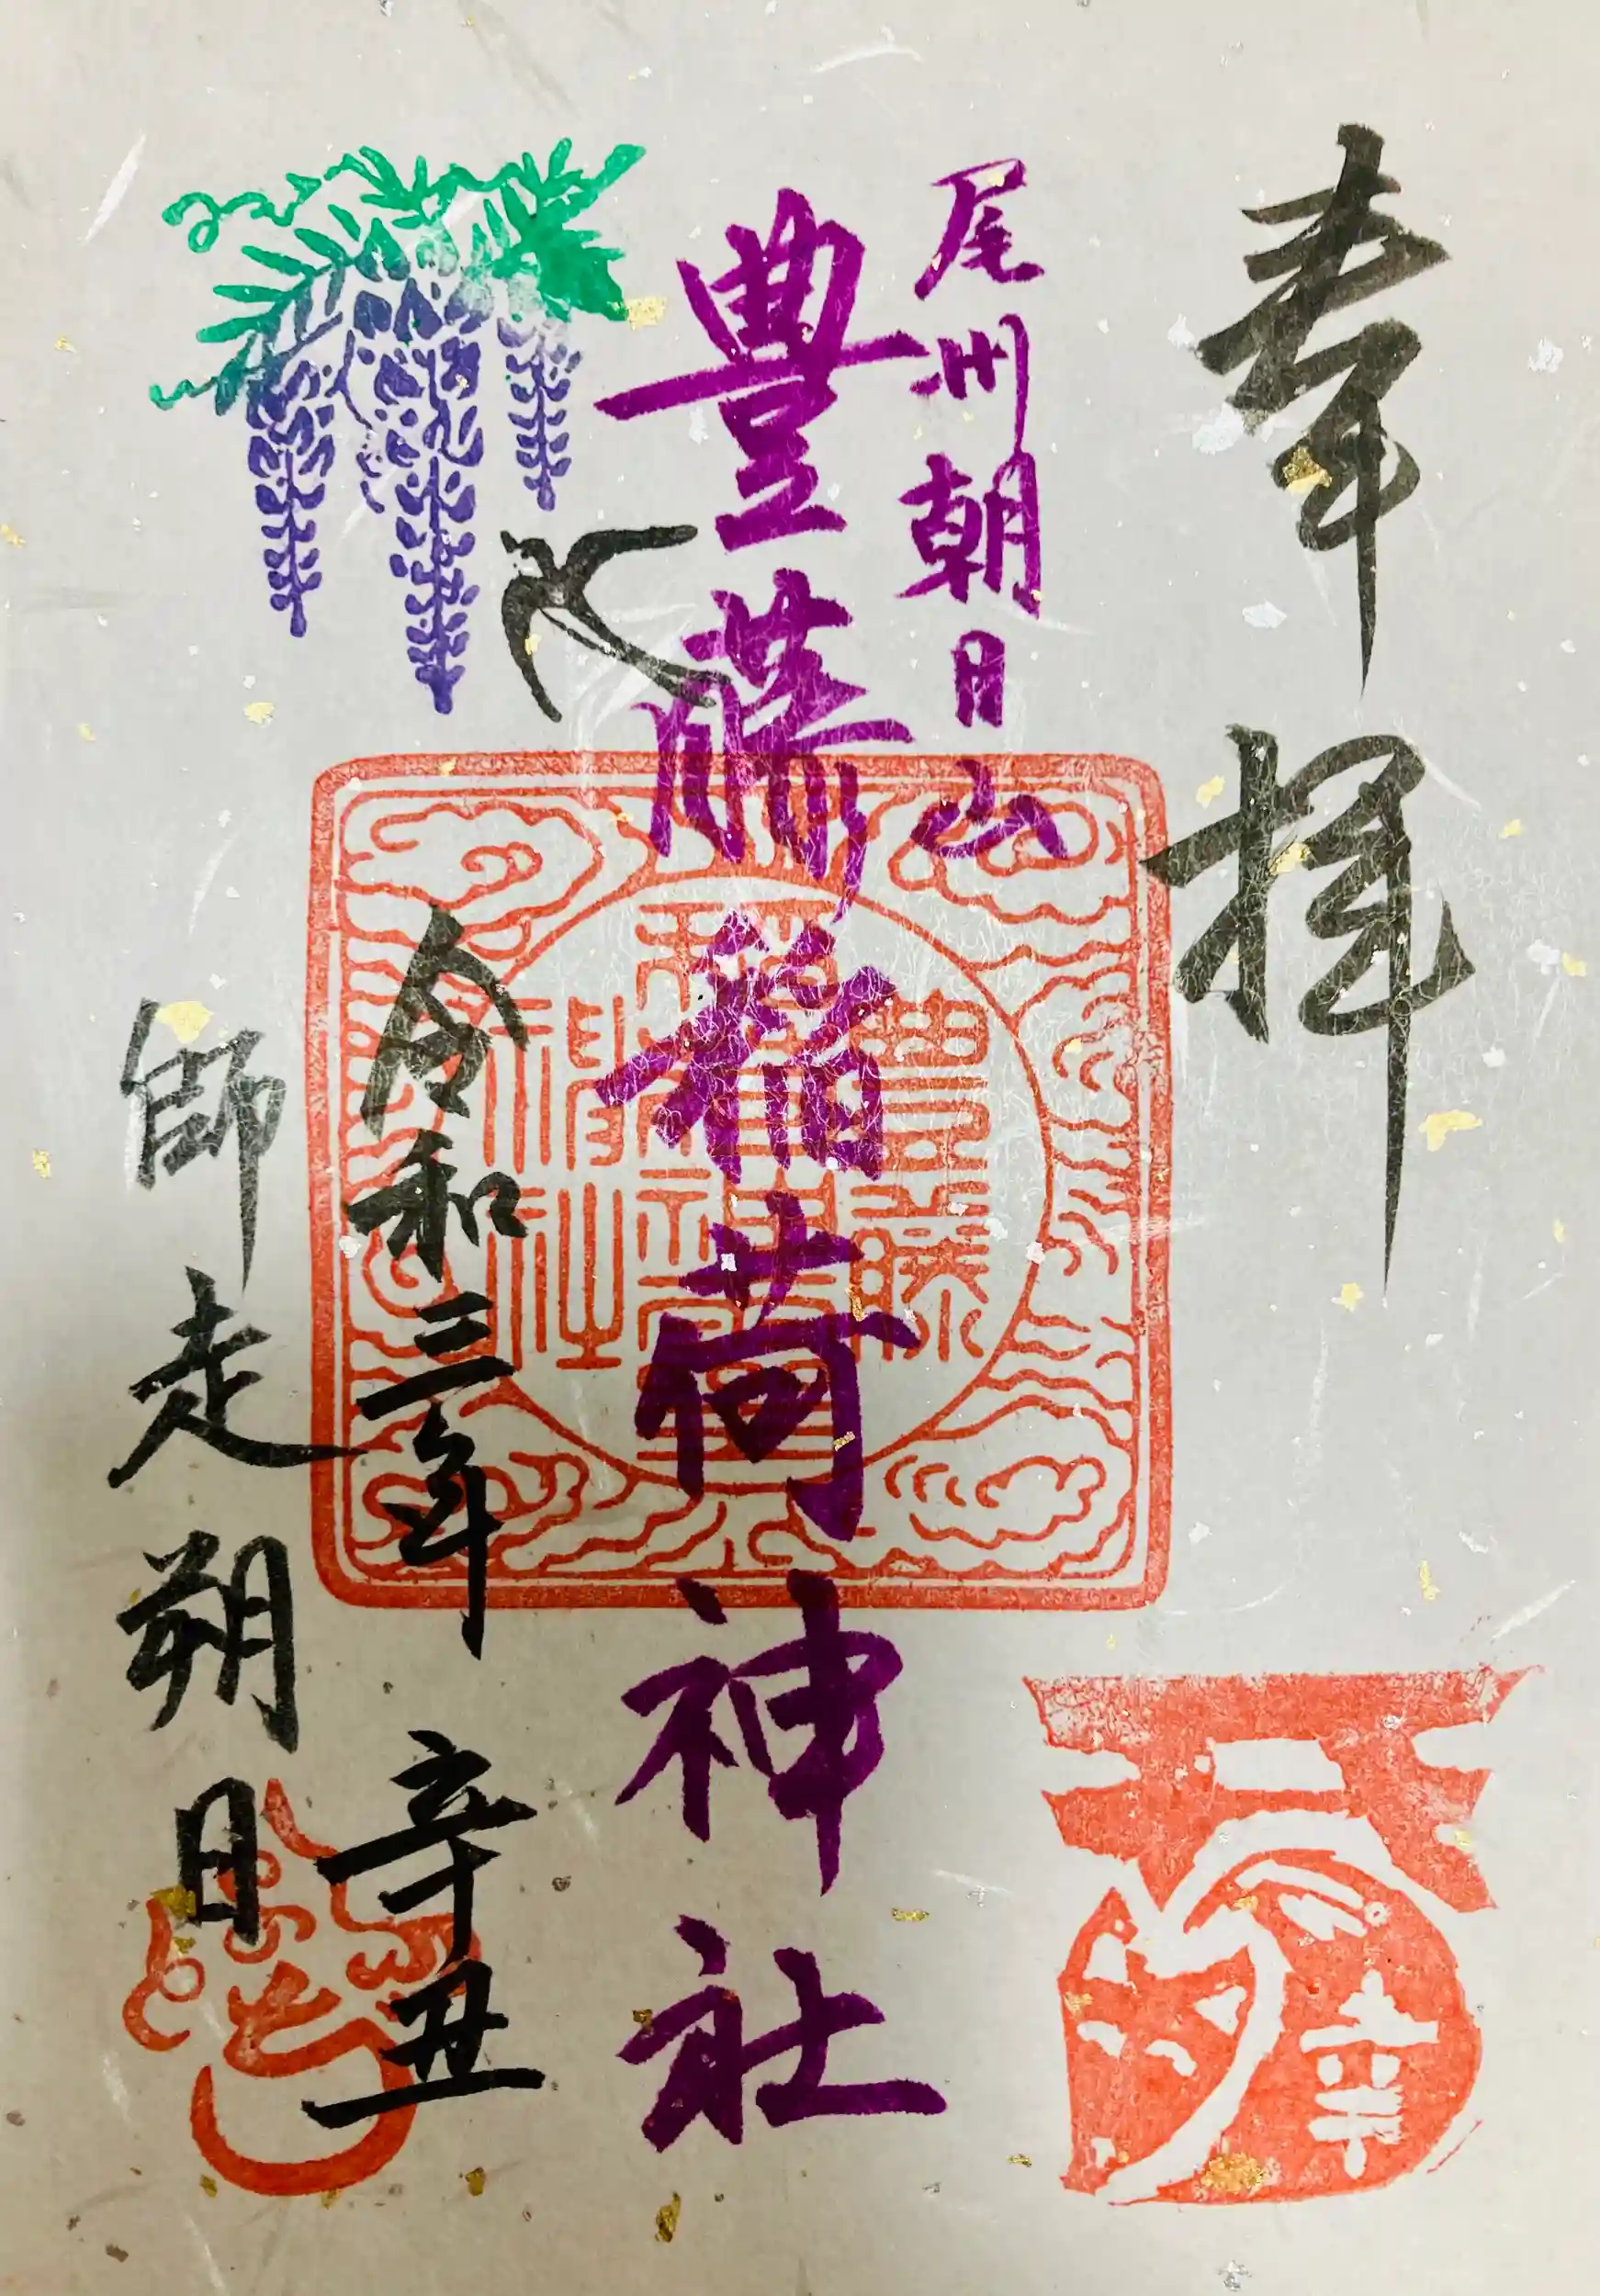 奉拝
尾州朝日山
豊藤稲荷神社
令和三年 辛丑
師走朔日
豊藤
稲荷神社
幸